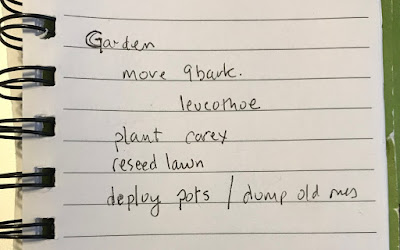 Garden
move 9bark.
leucothoe
plant carex
reseed lawn
deploy pots / dump old ones